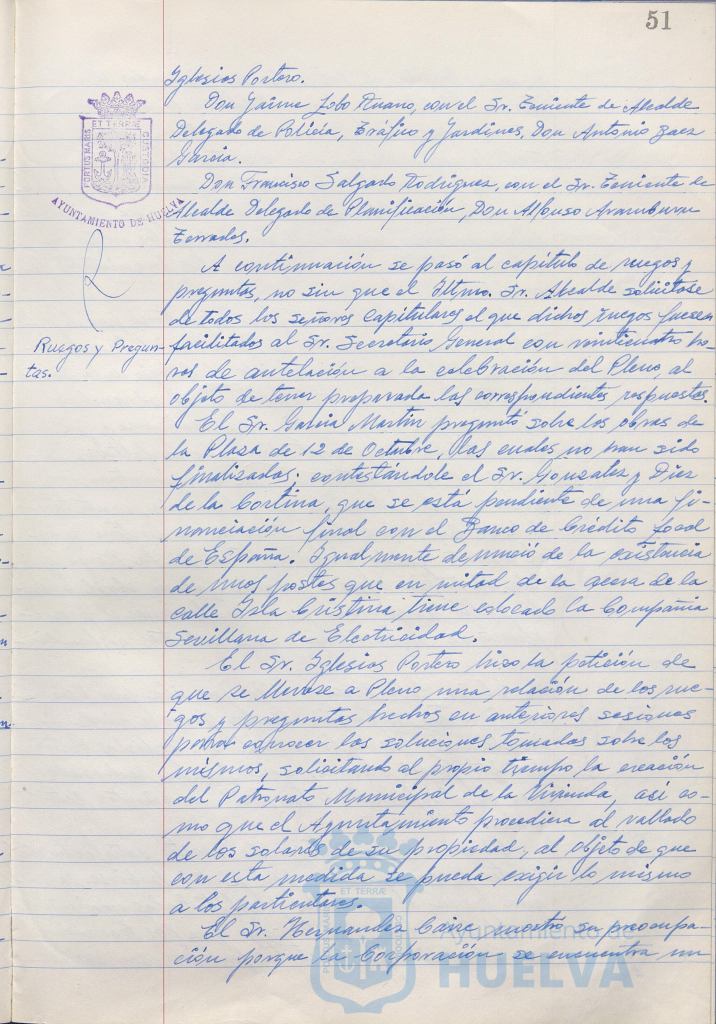 51
Iglesias Portero.
Don Jaime Lobo        , con el Sr. Teniente de Alcalde
Delegado de Policía, Tráfico y Jardines, Don Antonio Baez
García.
Don Francisco Salgado Rodríguez, con el Sr. Teniente de
Alcalde Delegado de Planificación, Don Alfonso Aramburu
Terrades.
PORTUS MARIS ET TERRÆ CUSTODIA
AYUNTAMIENTO DE HUELVA
Ruegos y Pregun-
tas.
A continuación se pasó al capítulo de ruegos y
preguntas, no sin que el Iltmo. Sr. Alcalde solicitase
de todos los señores Capitulares el que dichos ruegos fuesen
facilitados al Sr. Secretario General con veinticuatro ho-
ras de antelación a la celebración del Pleno, al
objeto de tener preparada las correspondientes respuestas.
El Sr. García Martín preguntó sobre las obras de
la Plaza de 12 de Octubre, las cuales no han sido
finalizadas; contestándole el Sr. Gonzalez y Diez
de la Cortina, que se está pendiente de una fi-
nanciación final con el Banco de Crédito Local
de España. Igualmente denunció de la existencia
de unos postes que en mitad de la acera de la
calle Isla Cristina tiene colocado la Compañía
Sevillana de Electricidad.
El Sr. Iglesias Portero hizo la petición de
que se llevase a Pleno una relación de los rue-
gos y preguntas hechos en anteriores sesiones
para conocer las soluciones tomadas sobre los
mismos, solicitando al propio tiempo la creación
del Patronato Municipal de la Vivienda, así co-
mo que el Ayuntamiento procediera al vallado
de los solares de su propiedad, al objeto de que
con esta medida se pueda exigir lo mismo
a los particulares.
El Sr. Hernandez        mostró su preocupa-
ción porque la Corporación se encuentra un
PORTUS MARIS ET TERRÆ CUSTODIA
Ayuntamiento de
HUELVA